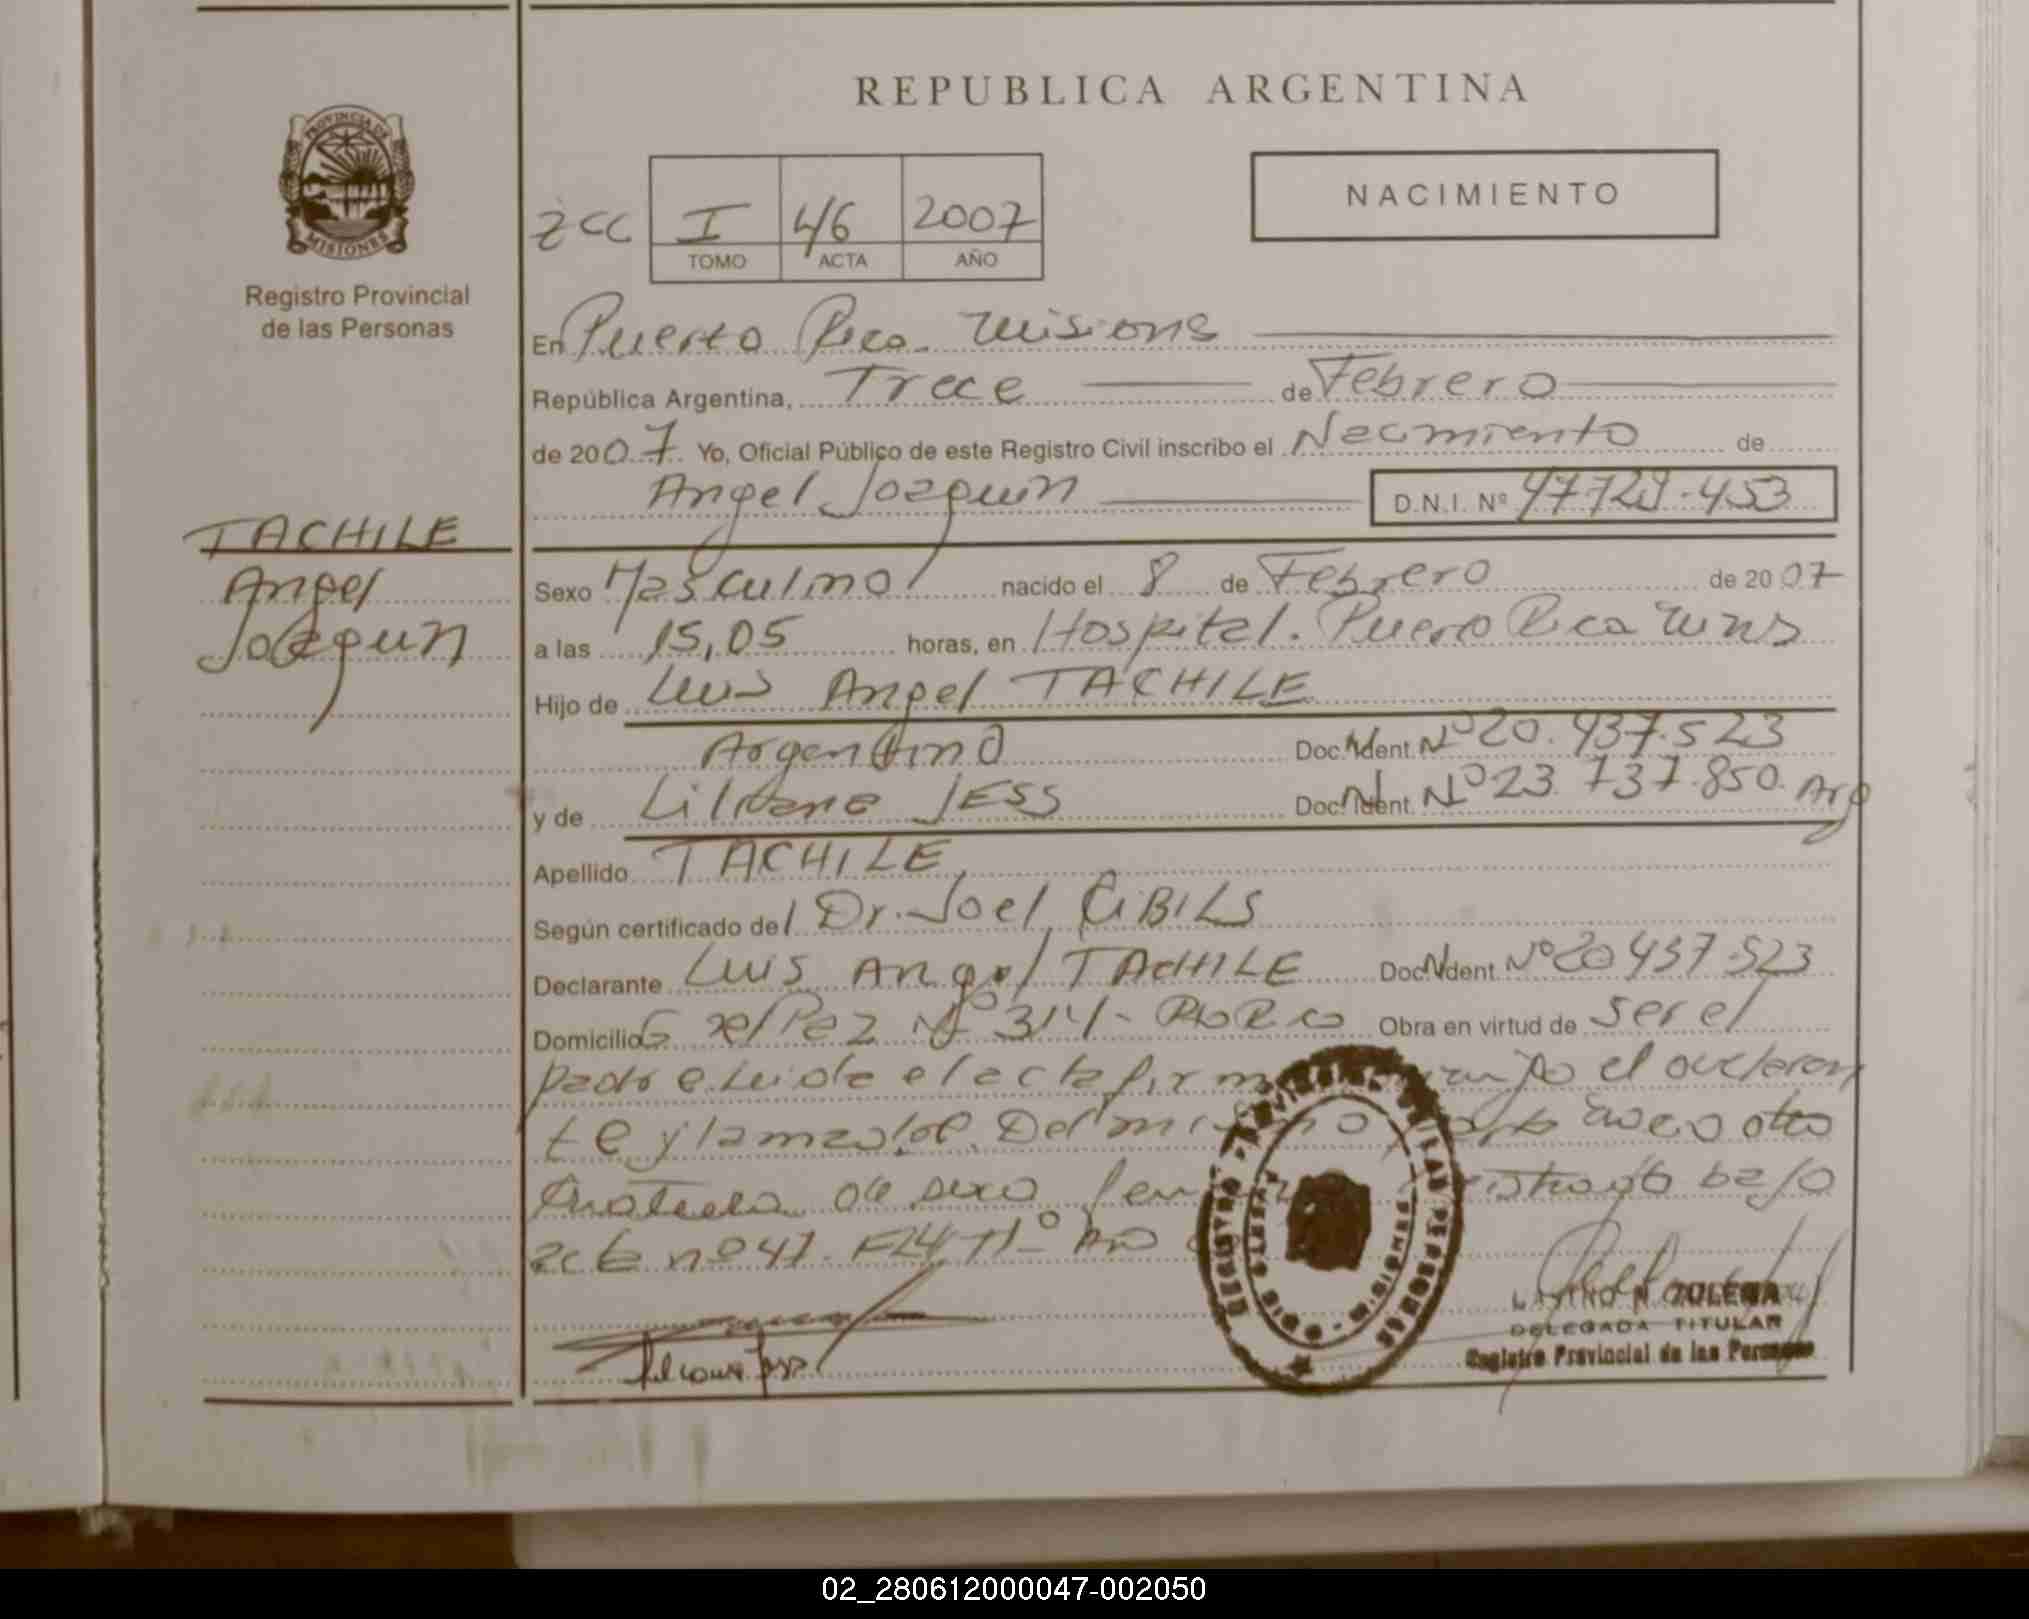 REPUBLICA ARGENTINA
NACIMIENTO
PROVINCIA DE
MISIONES
Registro Provincial
de las Personas
I 46 2007
TOMO ACTA AÑO
En Puerto Rico. Misions
República Argentina, Trece de Febrero
de 2007. Yo, Oficial Público de este Registro Civil inscribo el Nacimiento de
Angel Joaquin D.N.I. Nº 47.729.453
TACHILE
Angel
Joaquin
Sexo Masculino nacido el 8 de Febrero de 2007
a las 15,05 horas, en Hospital. Puerto Rico
Hijo de Luis Angel TACHILE
Argentino Doc. Ident. Nº 20.437.523
y de Liliana JESS Doc. Ident. Nº 23.737.850. Arg
Apellido TACHILE
Según certificado del Dr. Joel CIBILS
Declarante Luis Angel TACHILE Doc. Ident. Nº 20 437.523
Domicilio Nº 314- Obra en virtud de ser el
padre. Leida el acta firman el declaran
te y la madre. Del mismo parto nacio otro
de sexo bajo
acta nº 47.
REGISTRO PROVINCIAL DE LAS PERSONAS
MISIONES
DELEGADA TITULAR
Registro Provincial de las Personas
02_280612000047-002050